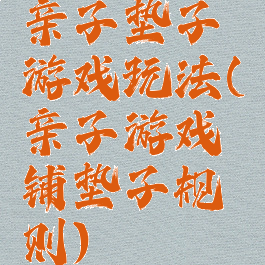 亲子垫子
游戏玩法(
亲子游戏
铺垫子规
则)